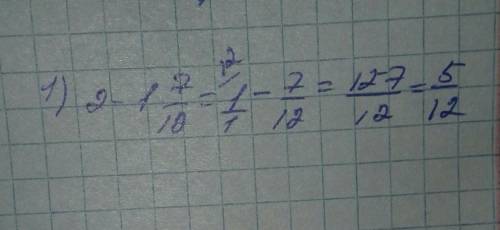 1) 2 - 1 7/12 = 12/ 1/1 - 7/12 = 127/12 = 5/12